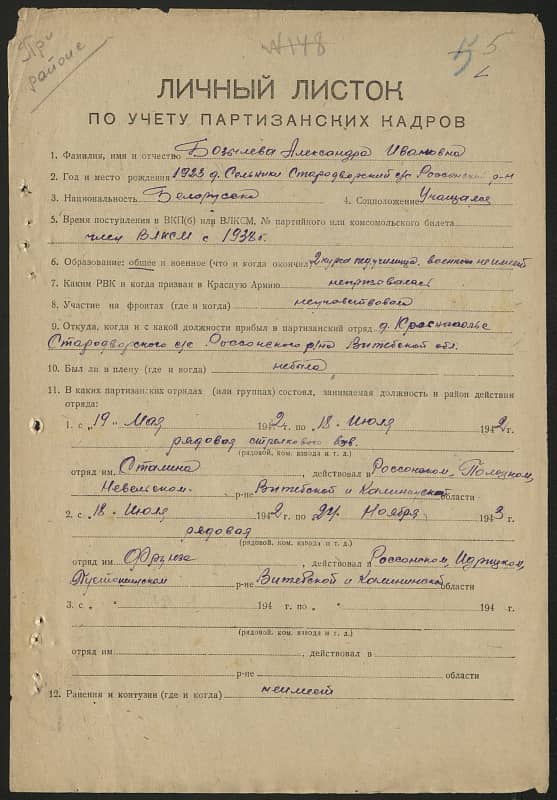 При
районе
№148
5 5
ЛИЧНЫЙ ЛИСТОК
ПО УЧЕТУ ПАРТИЗАНСКИХ КАДРОВ
1. Фамилия, имя и отчество Бозылева Александра Ивановна
2. Год и место рождения 1923 д. Сольники Стародворский с/с Россонский р-н
3. Национальность Белорусска 4. Соцположение Учащаяся
5. Время поступления в ВКП(б) или ВЛКСМ, № партийного или комсомольского билета
член ВЛКСМ с 1938г.
6. Образование: общее и военное (что и когда окончил) 2 курса педучилища, военного не имеет
7. Каким РВК и когда призван в Красную Армию непризывалась
8. Участие на фронтах (где и когда) неучавствовала
9. Откуда, когда и с какой должности прибыл в партизанский отряд д. Краснополье
Стародворского с/с Россонского р/на Витебской обл.
10. Был ли в плену (где и когда) небыла
11. В каких партизанских отрядах (или группах) состоял, занимаемая должность и район действия
отряда:
1. с „19" Мая 1942 г. по „18" Июля 1942 г.
рядовая стрелкового взв.
(рядовой, ком. взвода и т. д.)
отряд им. Сталина, действовал в Россонском, Полоцком,
Невельском р-не Витебской и Калининской области
2. с „18" Июля 1942 г. по „24" Ноября 1943 г.
рядовая
(рядовой, ком. взвода и т. д.)
отряд им. Фрунзе, действовал в Россонском, Идрицком,
Пустошкинском р-не Витебской и Калининской области
3. с „ " 194 г. по „ " 194 г.
(рядовой, ком. взвода и т. д.)
отряд им. , действовал в
р-не области
12. Ранения и контузии (где и когда) неимеет